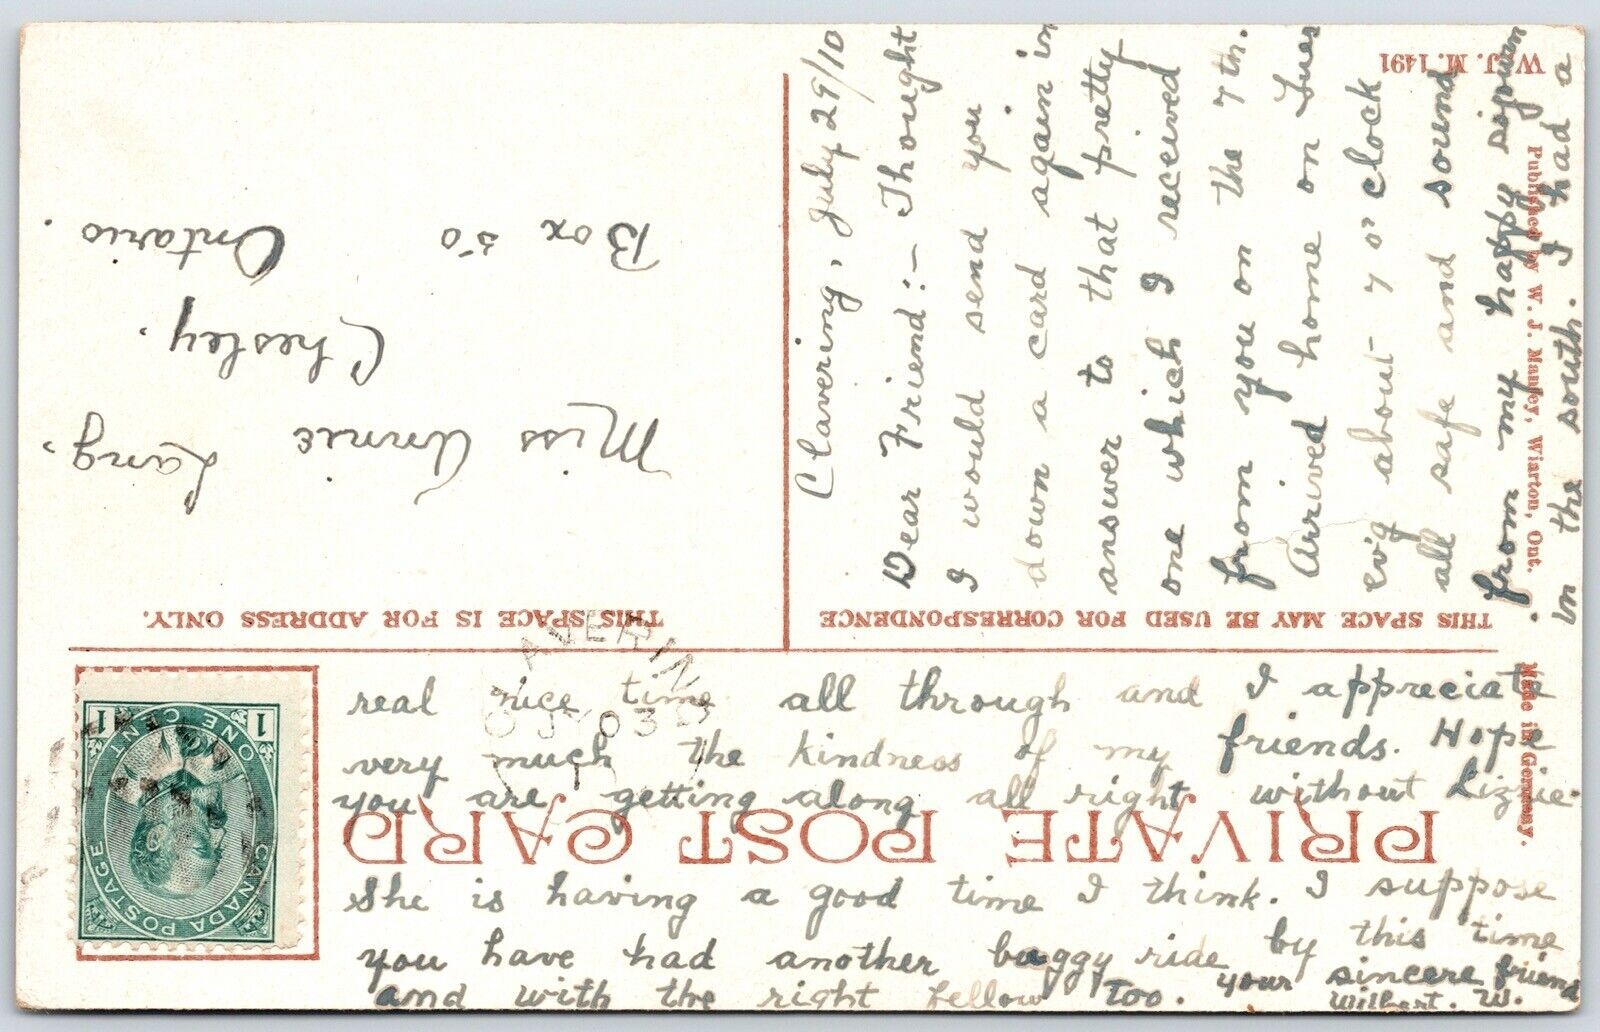 PRIVATE POST CARD
THIS SPACE MAY BE USED FOR CORRESPONDENCE
THIS SPACE IS FOR ADDRESS ONLY.
W. J. M. 1491
Published by W. J. Manley, Wiarton, Ont.
Made in Germany.
CANADA POSTAGE
ONE CENT
1 1
CLAVERING
JY 30
10
Miss Annie Lang.
Chesley.
Box 50
Ontario.
Clavering, July 29/10
Dear Friend:- Thought
I would send you
down a card again in
answer to that pretty
one which I received
from you on the 7th.
Arrived home on Tues
ev'g about 7 o'clock
all safe and sound
from my happy sojourn
in the south. I had a
real nice time all through and I appreciate
very much the kindness of my friends. Hope
you are getting along all right without Lizzie.
She is having a good time I think. I suppose
you have had another buggy ride by this time
and with the right fellow too. your sincere friend
Wilbert. W.